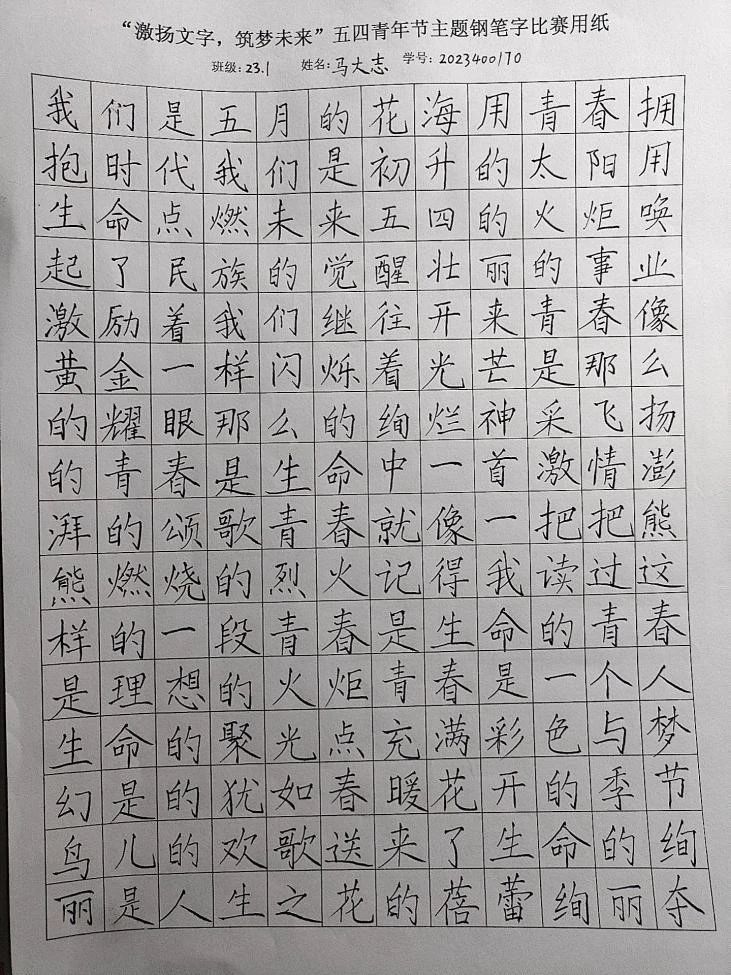 “激扬文字，筑梦未来”五四青年节主题钢笔字比赛用纸
班级：23.1 姓名：马大志 学号：2023400170
我们是五月的花海用青春拥
抱时代我们是初升的太阳用
生命点燃未来五四的火炬唤
起了民族的觉醒壮丽的事业
激励着我们继往开来青春像
黄金一样闪烁着光芒是那么
的耀眼那么的绚烂神采飞扬
的青春是生命中一首激情澎
湃的颂歌青春就像一把把熊
熊燃烧的烈火记得我读过这
样的一段青春是生命的青春
是理想的火炬青春是一个人
生命的聚光点充满彩色与梦
幻是的犹如春暖花开的季节
鸟儿的欢歌送来了生命的绚
丽是人生之花的蓓蕾绚丽夺